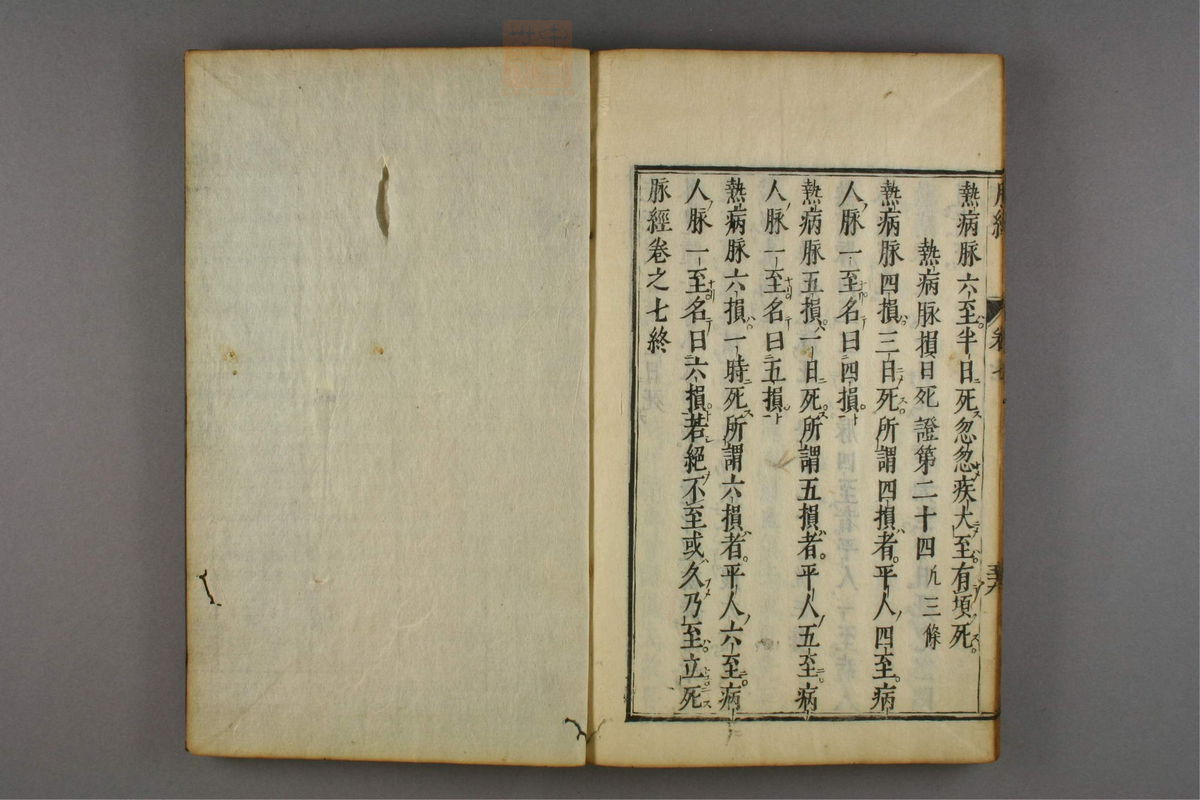 熱病脉六至半日死忽忽疾大至有頃死
熱病脉損日死證第二十四凡三條
熱病脉四損三日死所謂四損者平人四至病
人脉一至名曰四損
熱病脉五損一日死所謂五損者平人五至病
人脉一至名曰五損
熱病脉六損一時死所謂六損者平人六至病
人脉一至名曰六損若絕不至或久乃至立死
脉經卷之七終